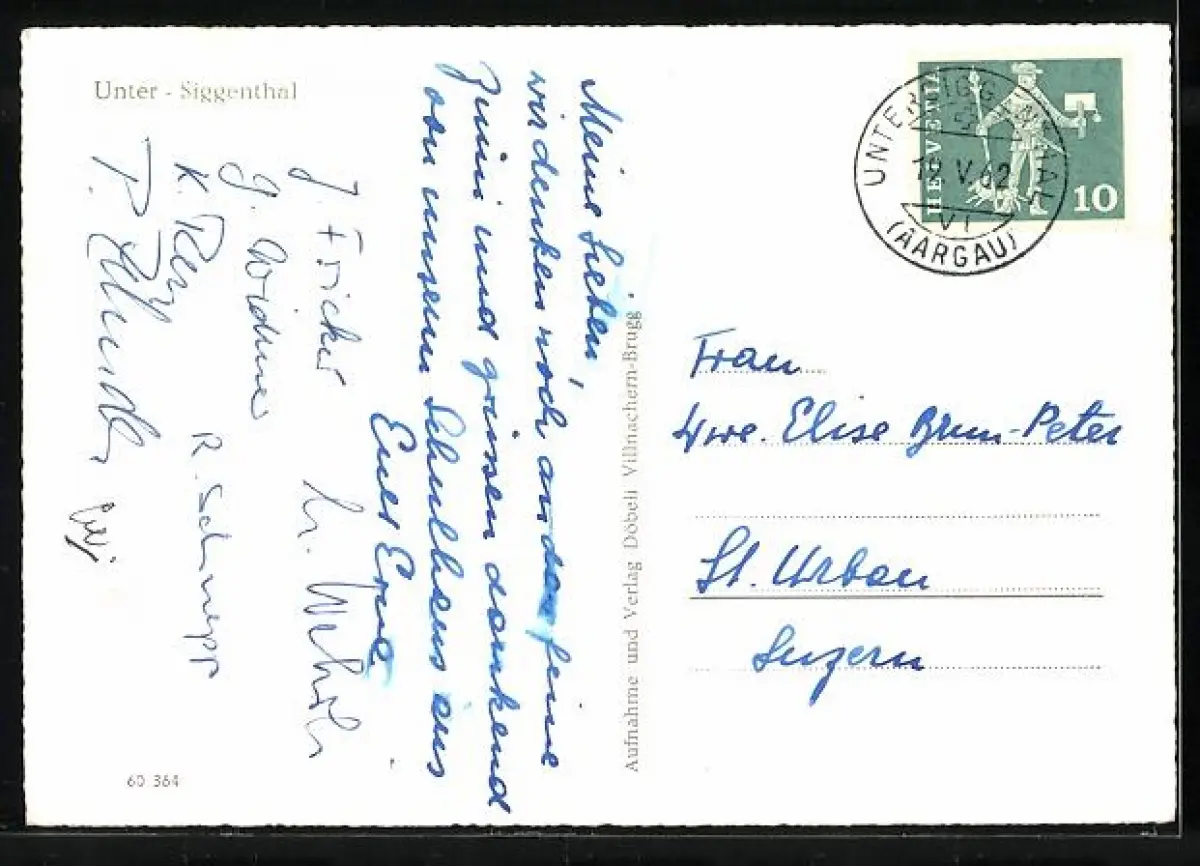 Unter - Siggenthal
Meine Lieben,
wir denken noch an das feine
Zünni und grüssen dankend
von unserm Schulhaus aus
Euer Erna
J. Fricker
G. Widmer
K. 
R. Schnepp
P.
60 364
Aufnahme und Verlag Döbeli Villnachern-Brugg
HELVETIA
10
UNTERSIGGENTHAL
19.V.62
VI
(AARGAU)
Frau
Wwe. Elise Brun-Peter
St. Urban
Luzern